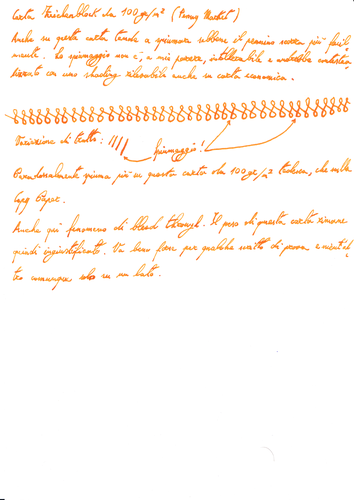 Carta Zeichenblock da 100gr/m² (Penny Market)
Anche su questa carta tende a spiumare sebbene il pennino scorra più facil
mente. Lo spiumaggio non è, a mio parere, intollerabile e andrebbe
con uno shading rilevabile anche su carta economica.
Variazione di tratto: //// Spiumaggio!
Paradossalmente spiuma più su questa carta da 100gr/m² tedesca, che sulla
Copy Paper.
Anche qui fenomeno di bleed through. Il peso di questa carta rimane
quindi ingiustificato. Va bene forse per qualche scritto di prova e nient'al
tro comunque solo su un lato.